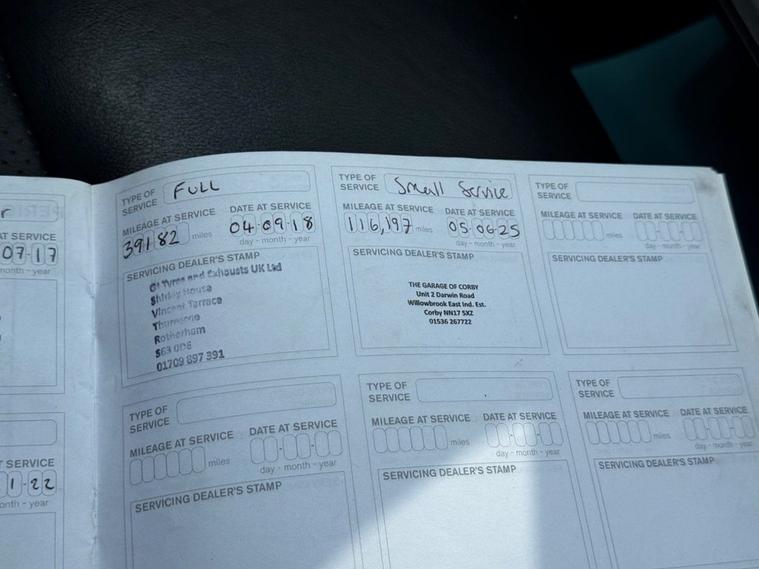 r
AT SERVICE
07-17
month - year
TYPE OF SERVICE FULL
MILEAGE AT SERVICE DATE AT SERVICE
39182 miles 04-09-18
day - month - year
SERVICING DEALER'S STAMP
Tyres and Exhausts UK Ltd
Shirley House
Vincent Terrace
Thurnscoe
Rotherham
S63
01709 897 391
TYPE OF SERVICE Small Service
MILEAGE AT SERVICE DATE AT SERVICE
116,197 miles 05-06-25
day - month - year
SERVICING DEALER'S STAMP
THE GARAGE OF CORBY
Unit 2 Darwin Road
Willowbrook East Ind. Est.
Corby NN17 5XZ
01536 267722
TYPE OF SERVICE
MILEAGE AT SERVICE DATE AT SERVICE
miles
day - month - year
SERVICING DEALER'S STAMP
AT SERVICE
1-22
month - year
TYPE OF SERVICE
MILEAGE AT SERVICE DATE AT SERVICE
miles
day - month - year
SERVICING DEALER'S STAMP
TYPE OF SERVICE
MILEAGE AT SERVICE DATE AT SERVICE
miles
day - month - year
SERVICING DEALER'S STAMP
TYPE OF SERVICE
MILEAGE AT SERVICE DATE AT SERVICE
miles
day - month - year
SERVICING DEALER'S STAMP